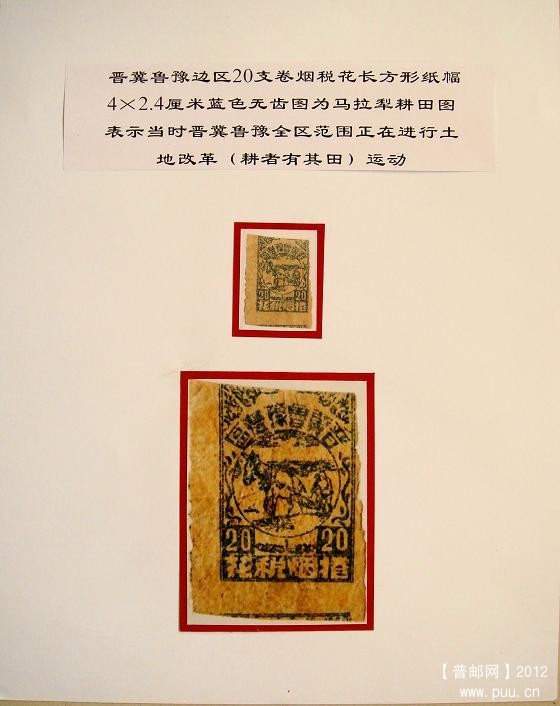 晋冀鲁豫边区20支卷烟税花长方形纸幅
4×2.4厘米蓝色无齿图为马拉犁耕田图
表示当时晋冀鲁豫全区范围正在进行土
地改革（耕者有其田）运动
20 20
花税烟捲
區邊豫魯冀晋
20 20
花税烟捲
【普邮网】2012
www.puu.cn